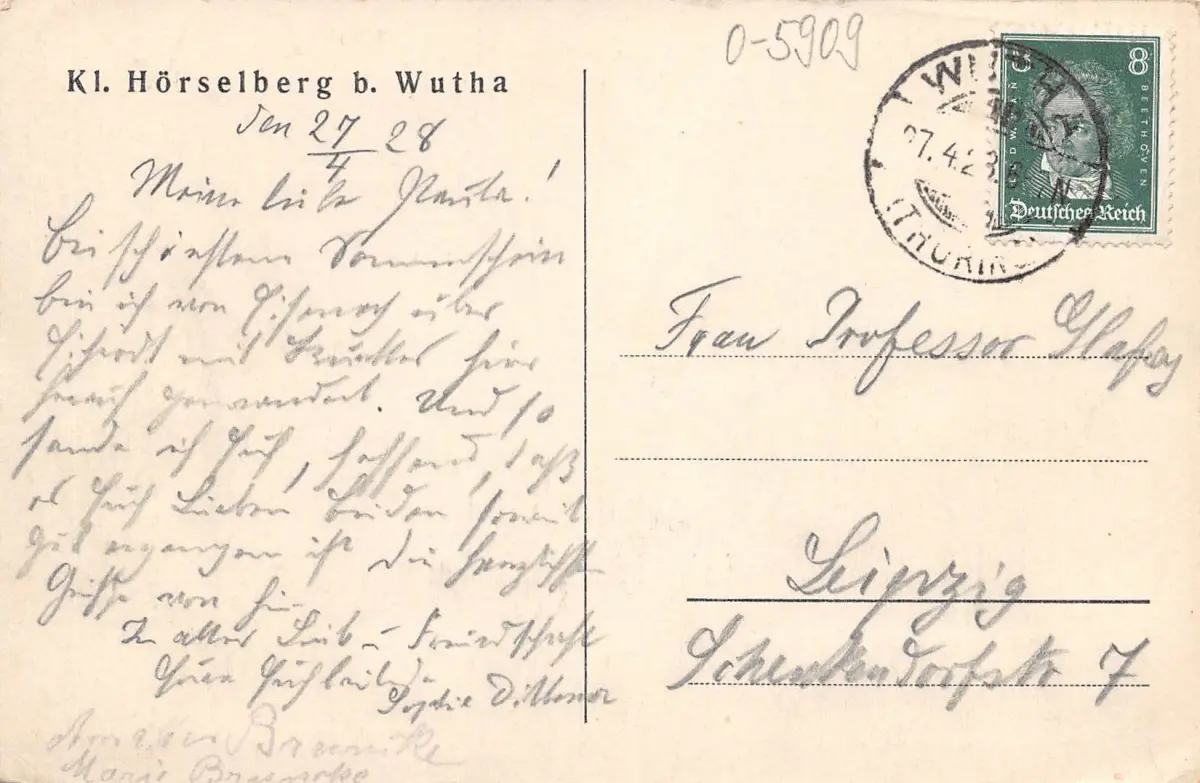 0-5909
Kl. Hörselberg b. Wutha
den 27/4 28
Meine liebe Paula!
Bei schönstem Sonnenschein
bin ich von Eisenach über
mit hier
herauf gewandert. Und so
sende ich Euch, hoffend, daß
es Euch Lieben beiden soweit
gut ergangen ist die herzlichsten
Grüße von hier
In alter Lieb u Freundschaft
Eure Euch liebende
Sophie Dittmar
Braencke
Marie Braencke
WUTHA
27.4.28.
(THÜRING
8 8
BEETHOVEN
Deutsches Reich
Frau Professor
Leipzig
Schenkendorfstr 7